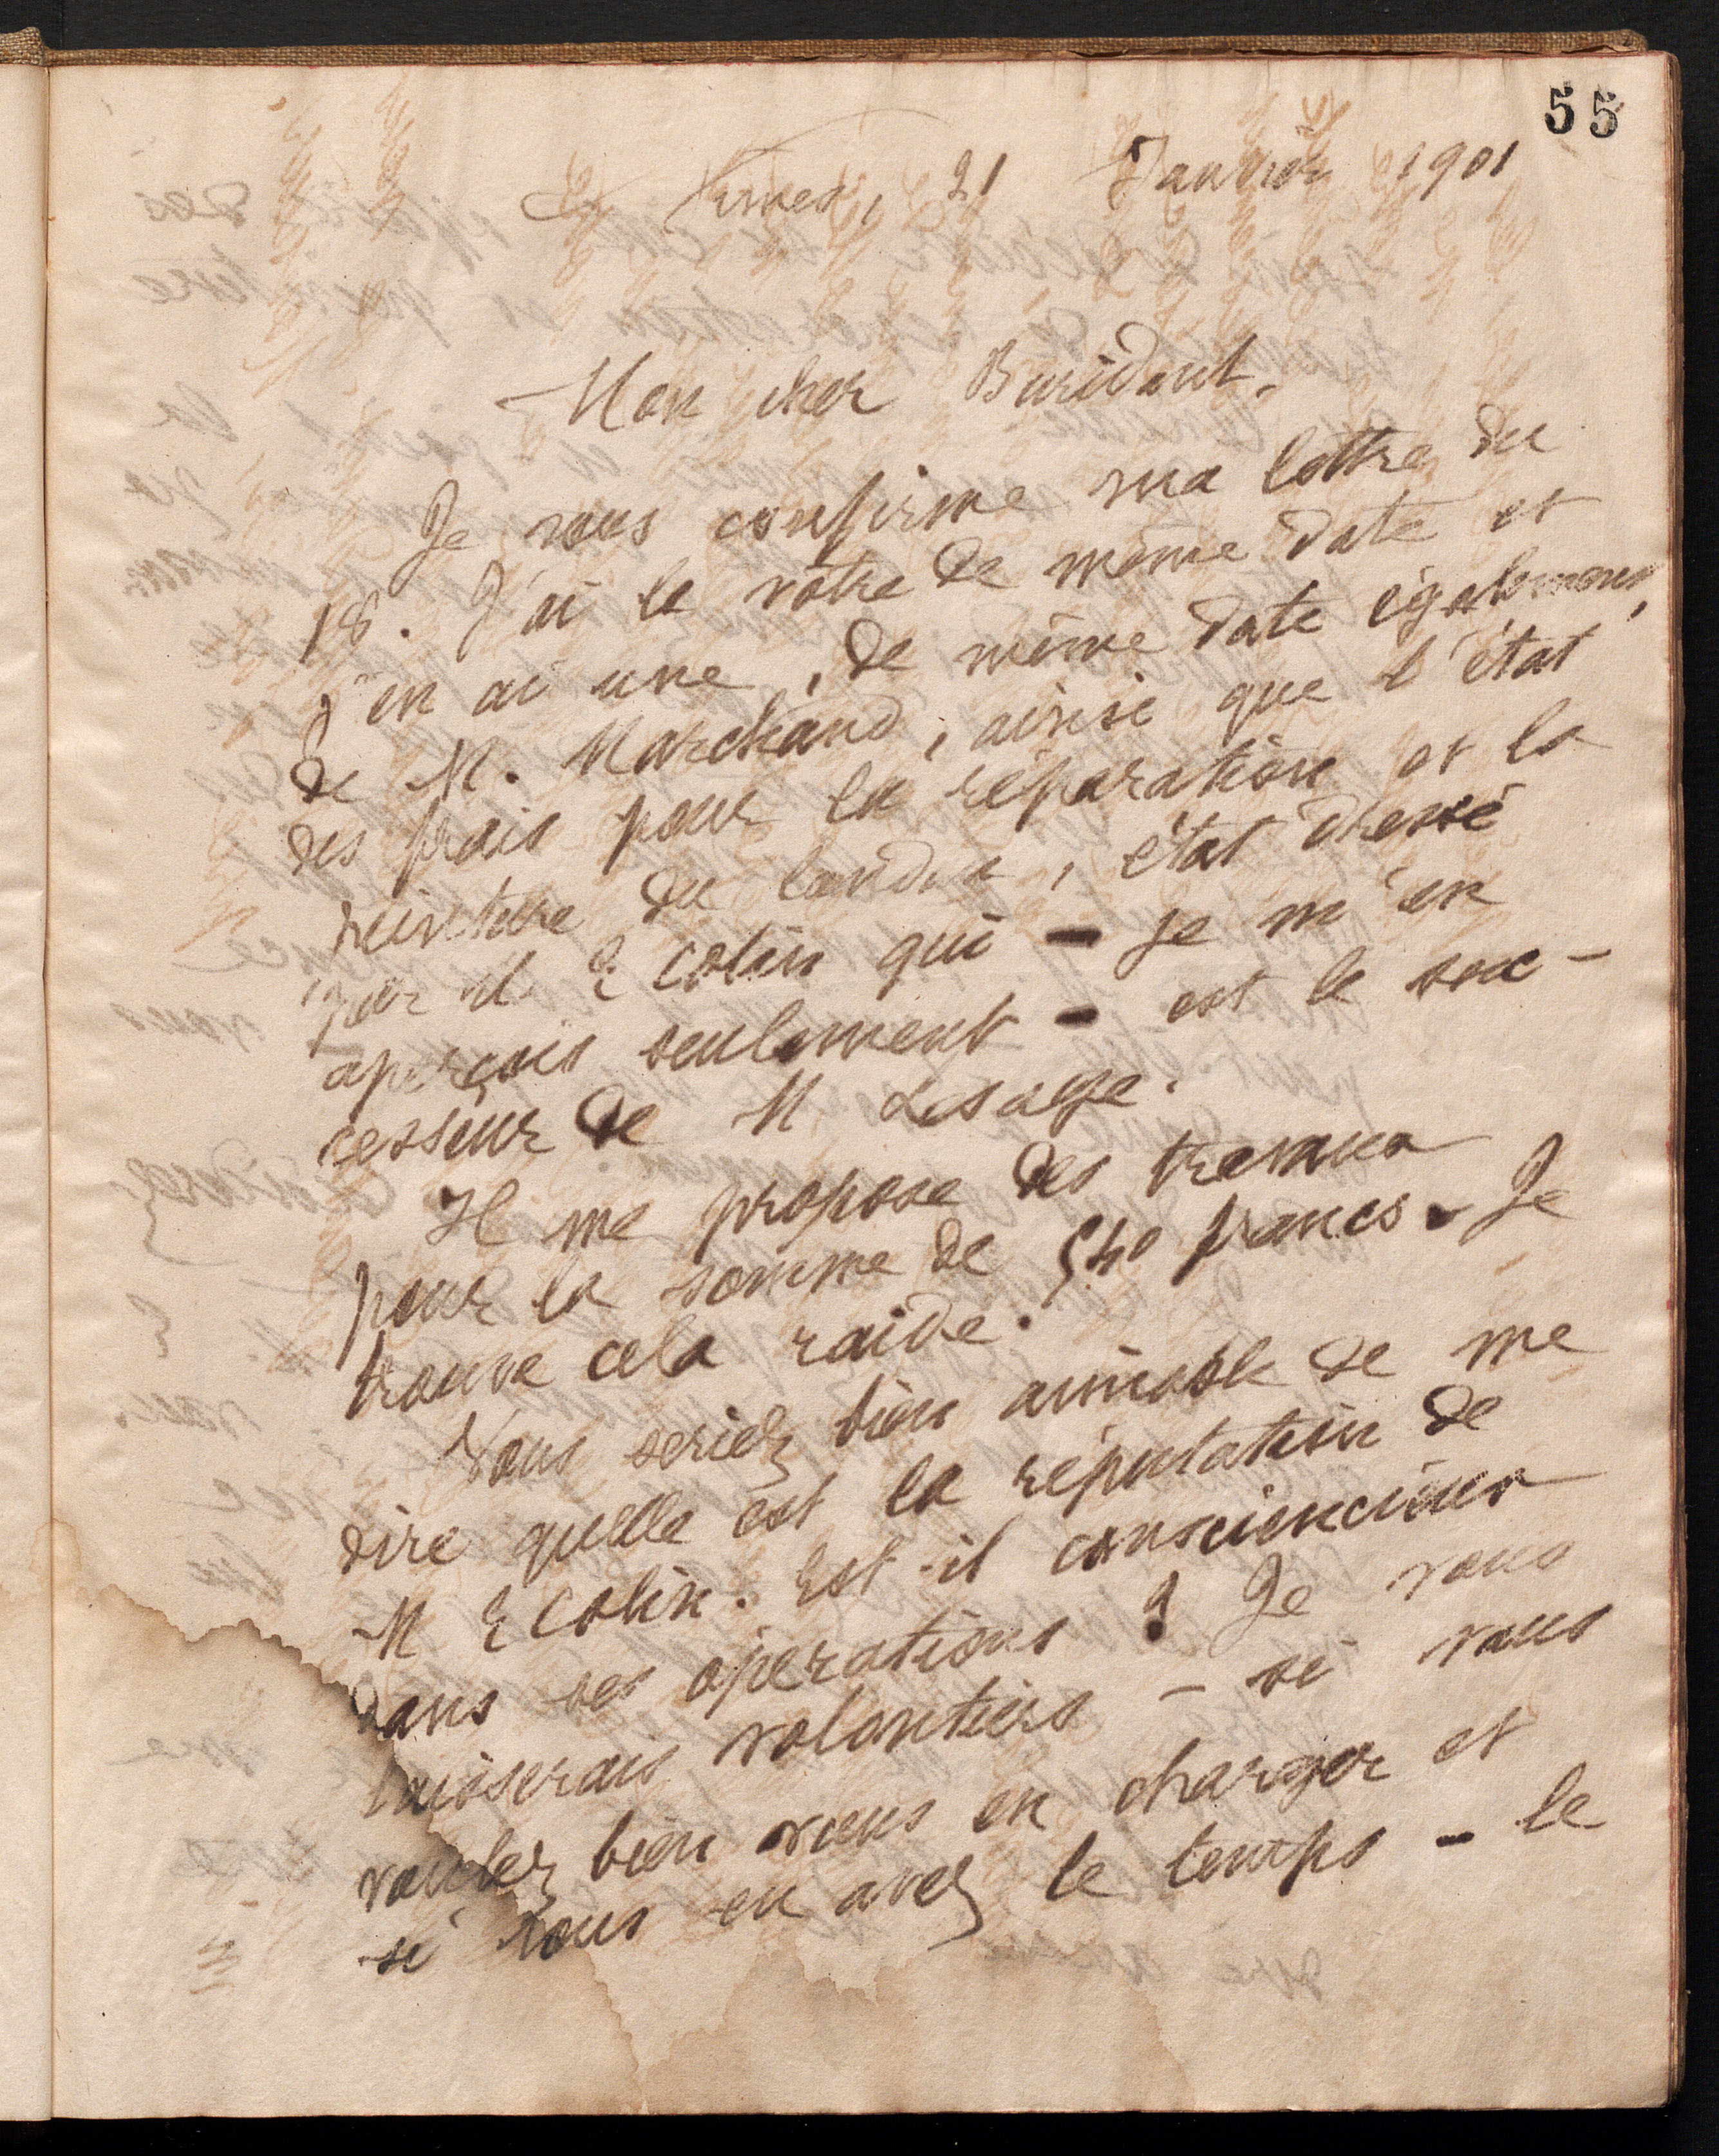 55
21 Janvier 1901
Mon cher Buridant,
Je vous confirme ma lettre du
18. J'ai la votre de même date et
j'en ai une, de même date également,
de M. Marchand, ainsi que l'état
des frais pour la réparation et la
peinture du landau, état dressé
par M. E Colin qui - je m'en
aperçois seulement - est le suc-
cesseur de M Lesage.
Il me propose des travaux
pour la somme de 540 francs. Je
trouve cela raide.
Vous seriez bien aimable de me
dire quelle est la réputation de
M E Colin. Est-il consciencieux
dans ses opérations ? Je vous
laisserais volontiers - si vous
voulez bien vous en charger et
si vous en avez le temps - le